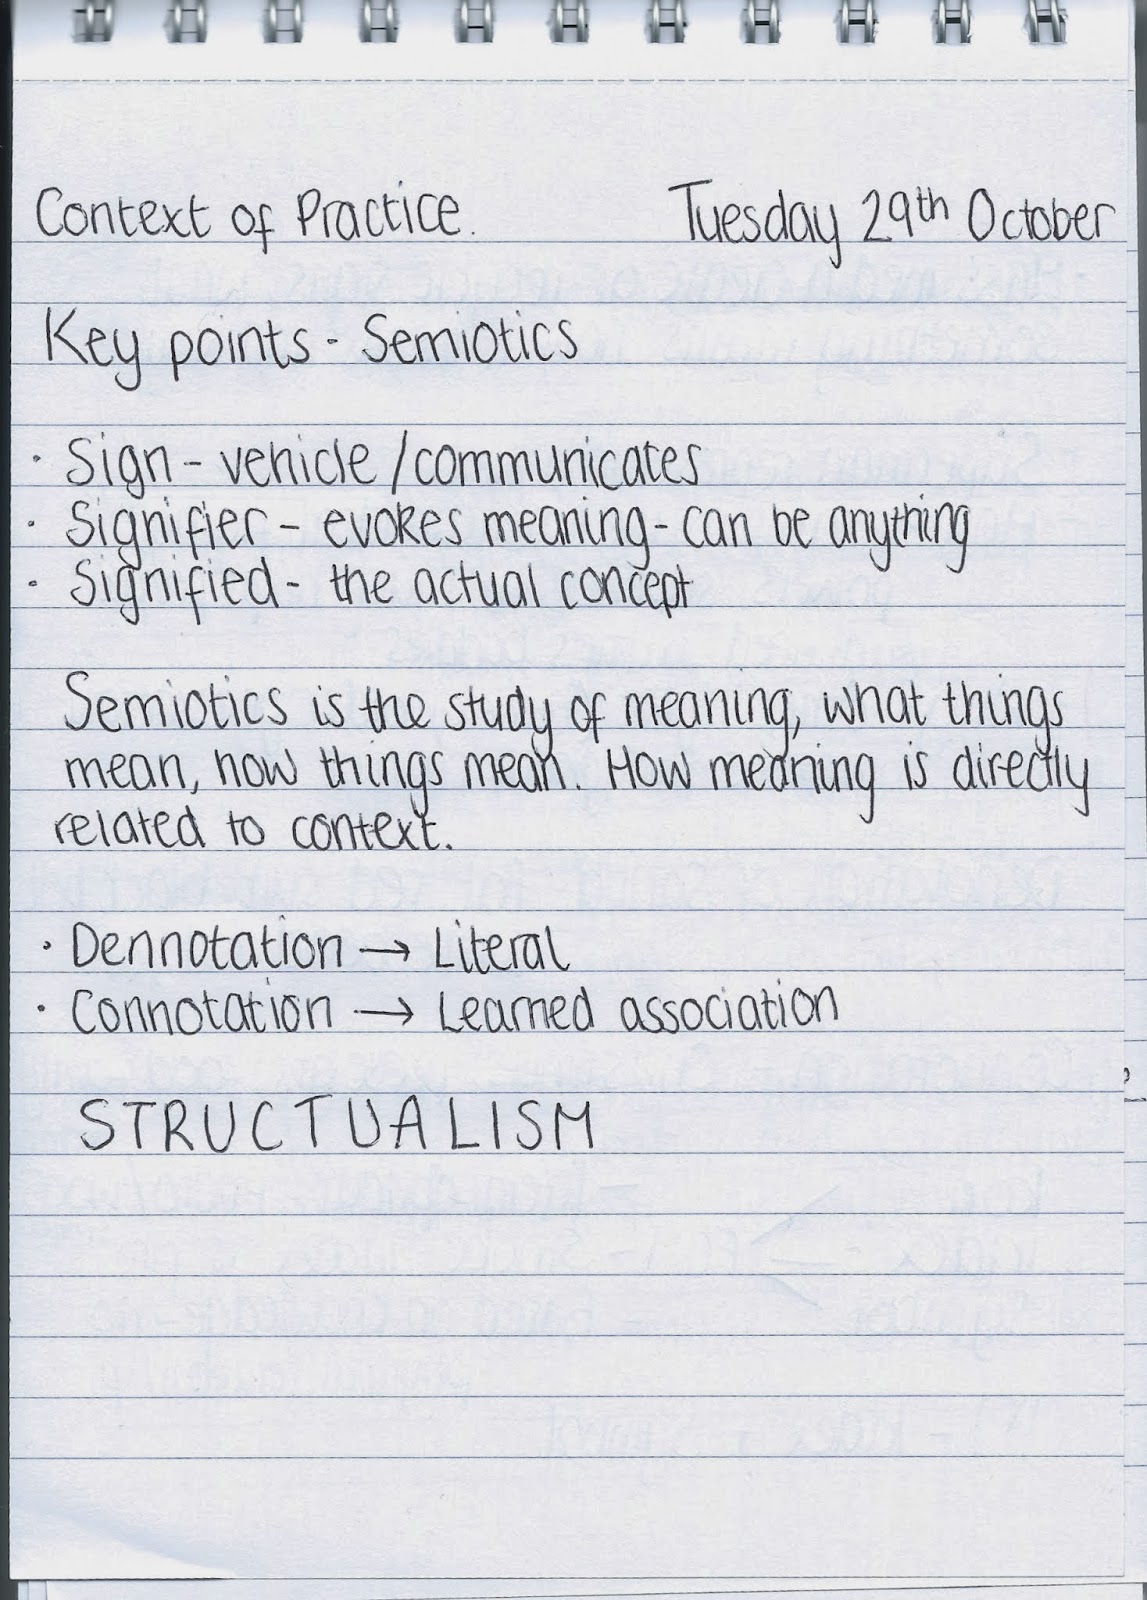 Context of Practice. Tuesday 29th October
Key points - Semiotics
· Sign - vehicle / communicates
· Signifier - evokes meaning - can be anything
· Signified - the actual concept
Semiotics is the study of meaning, what things
mean, how things mean. How meaning is directly
related to context.
· Dennotation → Literal
· Connotation → Learned association
STRUCTUALISM